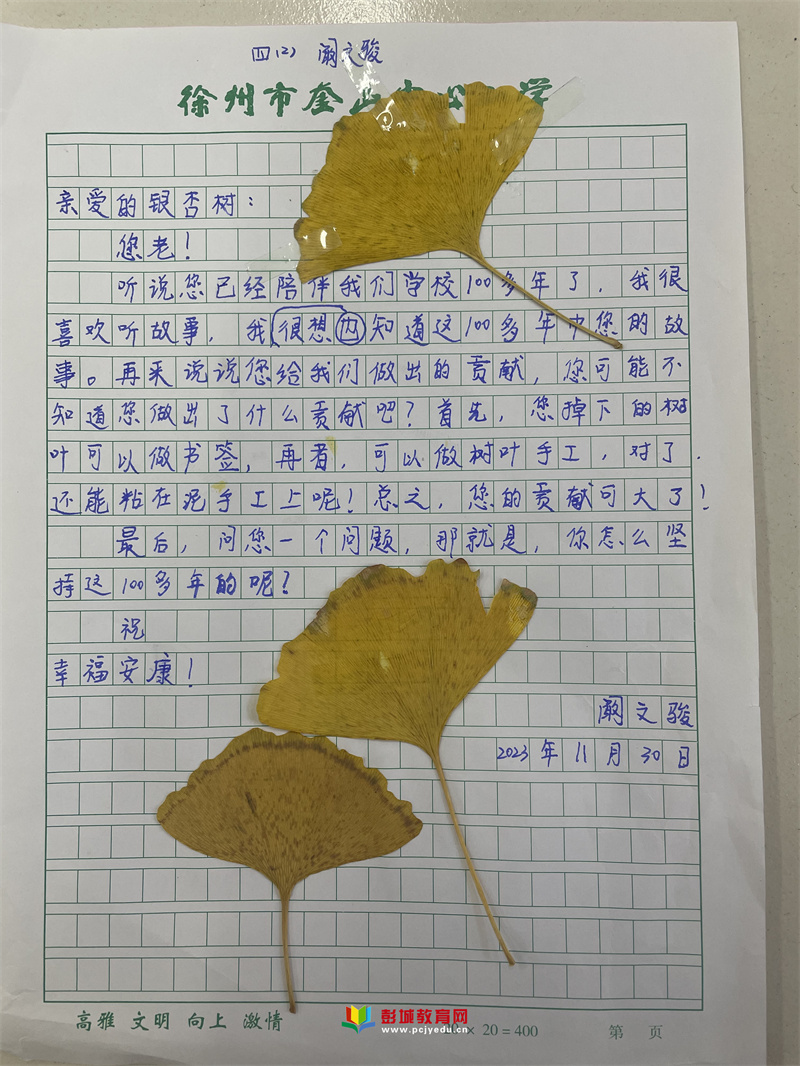 四(2) 阚文骏
徐州市奎山中心 学
亲爱的银杏树：
您老！
听说您已经陪伴我们学校100多年了，我很
喜欢听故事，我很想内知道这100多年中您的故
事。再来说说您给我们做出的贡献，您可能不
知道您做出了什么贡献吧？首先，您掉下的树
叶可以做书签，再者，可以做树叶手工，对了，
还能粘在泥手工上呢！总之，您的贡献可大了！
最后，问您一个问题，那就是，你怎么坚
持这100多年的呢？
祝
幸福安康！
阚文骏
2023年11月30日
高雅 文明 向上 激情
彭城教育网
www.pcjyedu.cn
× 20 = 400
第 页